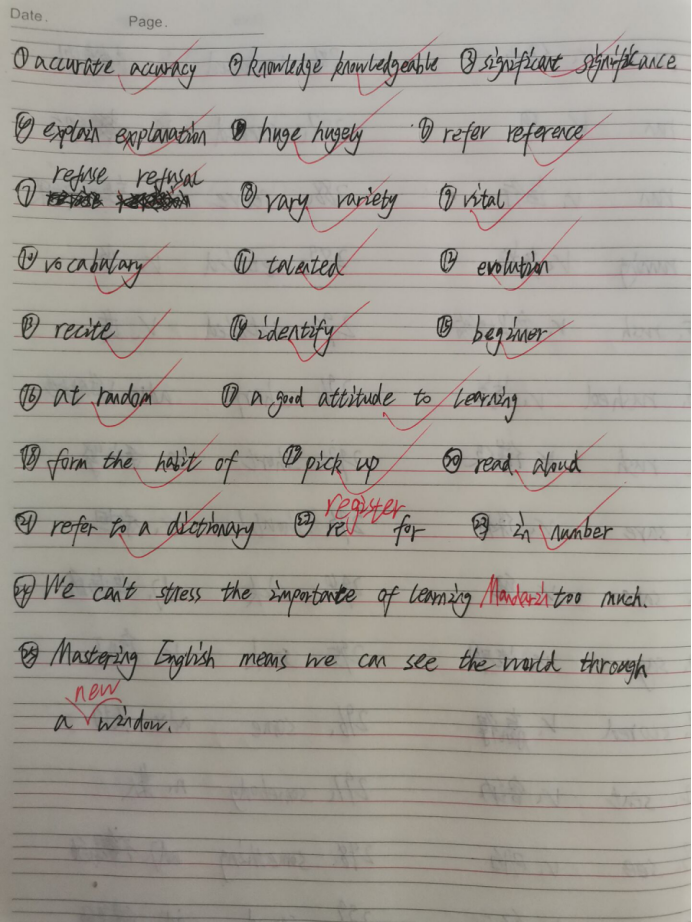 Date.
Page.
① accurate accuracy ② knowledge knowledgeable ③ significant significance
④ explain explanation ⑤ huge hugely ⑥ refer reference
refuse refusal
⑦ ⑧ vary variety ⑨ vital
⑩ vocabulary ⑪ talented ⑫ evolution
⑬ recite ⑭ identify ⑮ beginner
⑯ at random ⑰ a good attitude to learning
⑱ form the habit of ⑲ pick up ⑳ read aloud
register
㉑ refer to a dictionary ㉒ re for ㉓ in number
㉔ We can't stress the importance of learning Mandarin too much.
㉕ Mastering English means we can see the world through
new
a window.